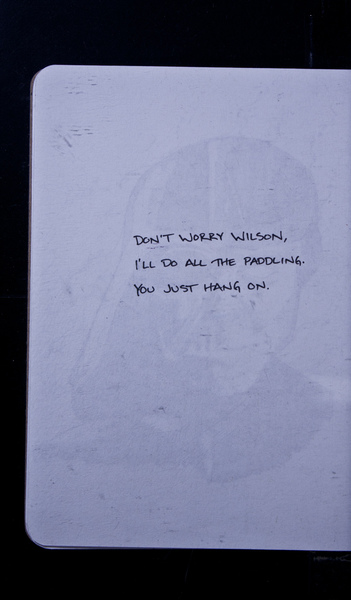 DON'T WORRY WILSON,
I'LL DO ALL THE PADDLING.
YOU JUST HANG ON.